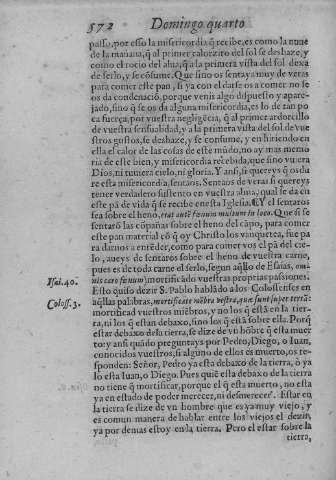 572 Domingo quarto
passo, por esso la misericordia q̃ recibe, es como la nuue
de la mañana, q̃ al primer calorzito del sol se deshaze, y
como el rocio del alua, q̃ a la primera vista del sol dexa
de serlo, y se cõsume. Que sino os sentays muy de veras
para comer este pan, si ya con el darse os a comer no se
os da condenaciõ, porque venis algo dispuesto y apare-
jado, sino q̃ se os da alguna misericordia, es lo de tan po
ca fuerça, por vuestra negligẽcia, q̃ al primer ardorcillo
de vuestra sensualidad, y a la primera vista del sol de vue
stros gustos, se deshaze, y se consume, y en hiriendo en
ella el calor de las cosas de este mũdo, no ay mas memo
ria de esse bien, y misericordia recebida, que sino vuiera
Dios, ni tuuiera cielo, ni gloria. Y ansi, si quereys q̃ os du
re esta misericordia, sentaos. Sentaos de veras si quereys
tener verdadero sustento en vuestra alma, qual se da en
este pã de vida q̃ se recibe en esta Iglesia. ¶ Y el sentaros
sea sobre el heno, erat autẽ fœnum multum in loco. Que si se
sentarõ las cõpañas sobre el heno del cãpo, para comer
este pan material cõ q̃ oy Christo los vanquetea, fue pa
ra darnos a entẽder, como para comer vos el pã del cie-
lo, aueys de sentaros sobre el heno de vuestra carne,
pues es de toda carne el serlo, segun aq̃llo de Esaias, om-
Isai. 40. nis caro fœnum) mortificãdo vuestras propias passiones.
Esto quiso dezir S. Pablo hablãdo a los Colossenses en
Coloss. 3. aq̃llas palabras, mortificate mẽbra vestra, quæ sunt super terrã:
mortificad vuestros miẽbros, y no los q̃ està en la tier-
ra, ni los q̃ estan debaxo, sino los q̃ està sobre ella. Porq̃
estar debaxo de la tierra, se dize de vn hõbre q̃ esta muer
to: y ansi quãdo preguntays por Pedro, Diego, o Iuan,
conocidos vuestros, si alguno de ellos es muerto, os res-
ponden: Señor, Pedro ya esta debaxo de la tierra, ò ya
lo esta Iuan, o Diego. Pues quiẽ esta debaxo de la tierra
no tiene q̃ mortificar, porque el q̃ esta muerto, no esta
ya en estado de poder merecer, ni desmerecer. Estar en
la tierra se dize de vn hombre que es ya muy viejo, y
es comun manera de hablar entre los viejos el dezir,
ya por demas estoy en la tierra. Pero el estar sobre la
tierra,